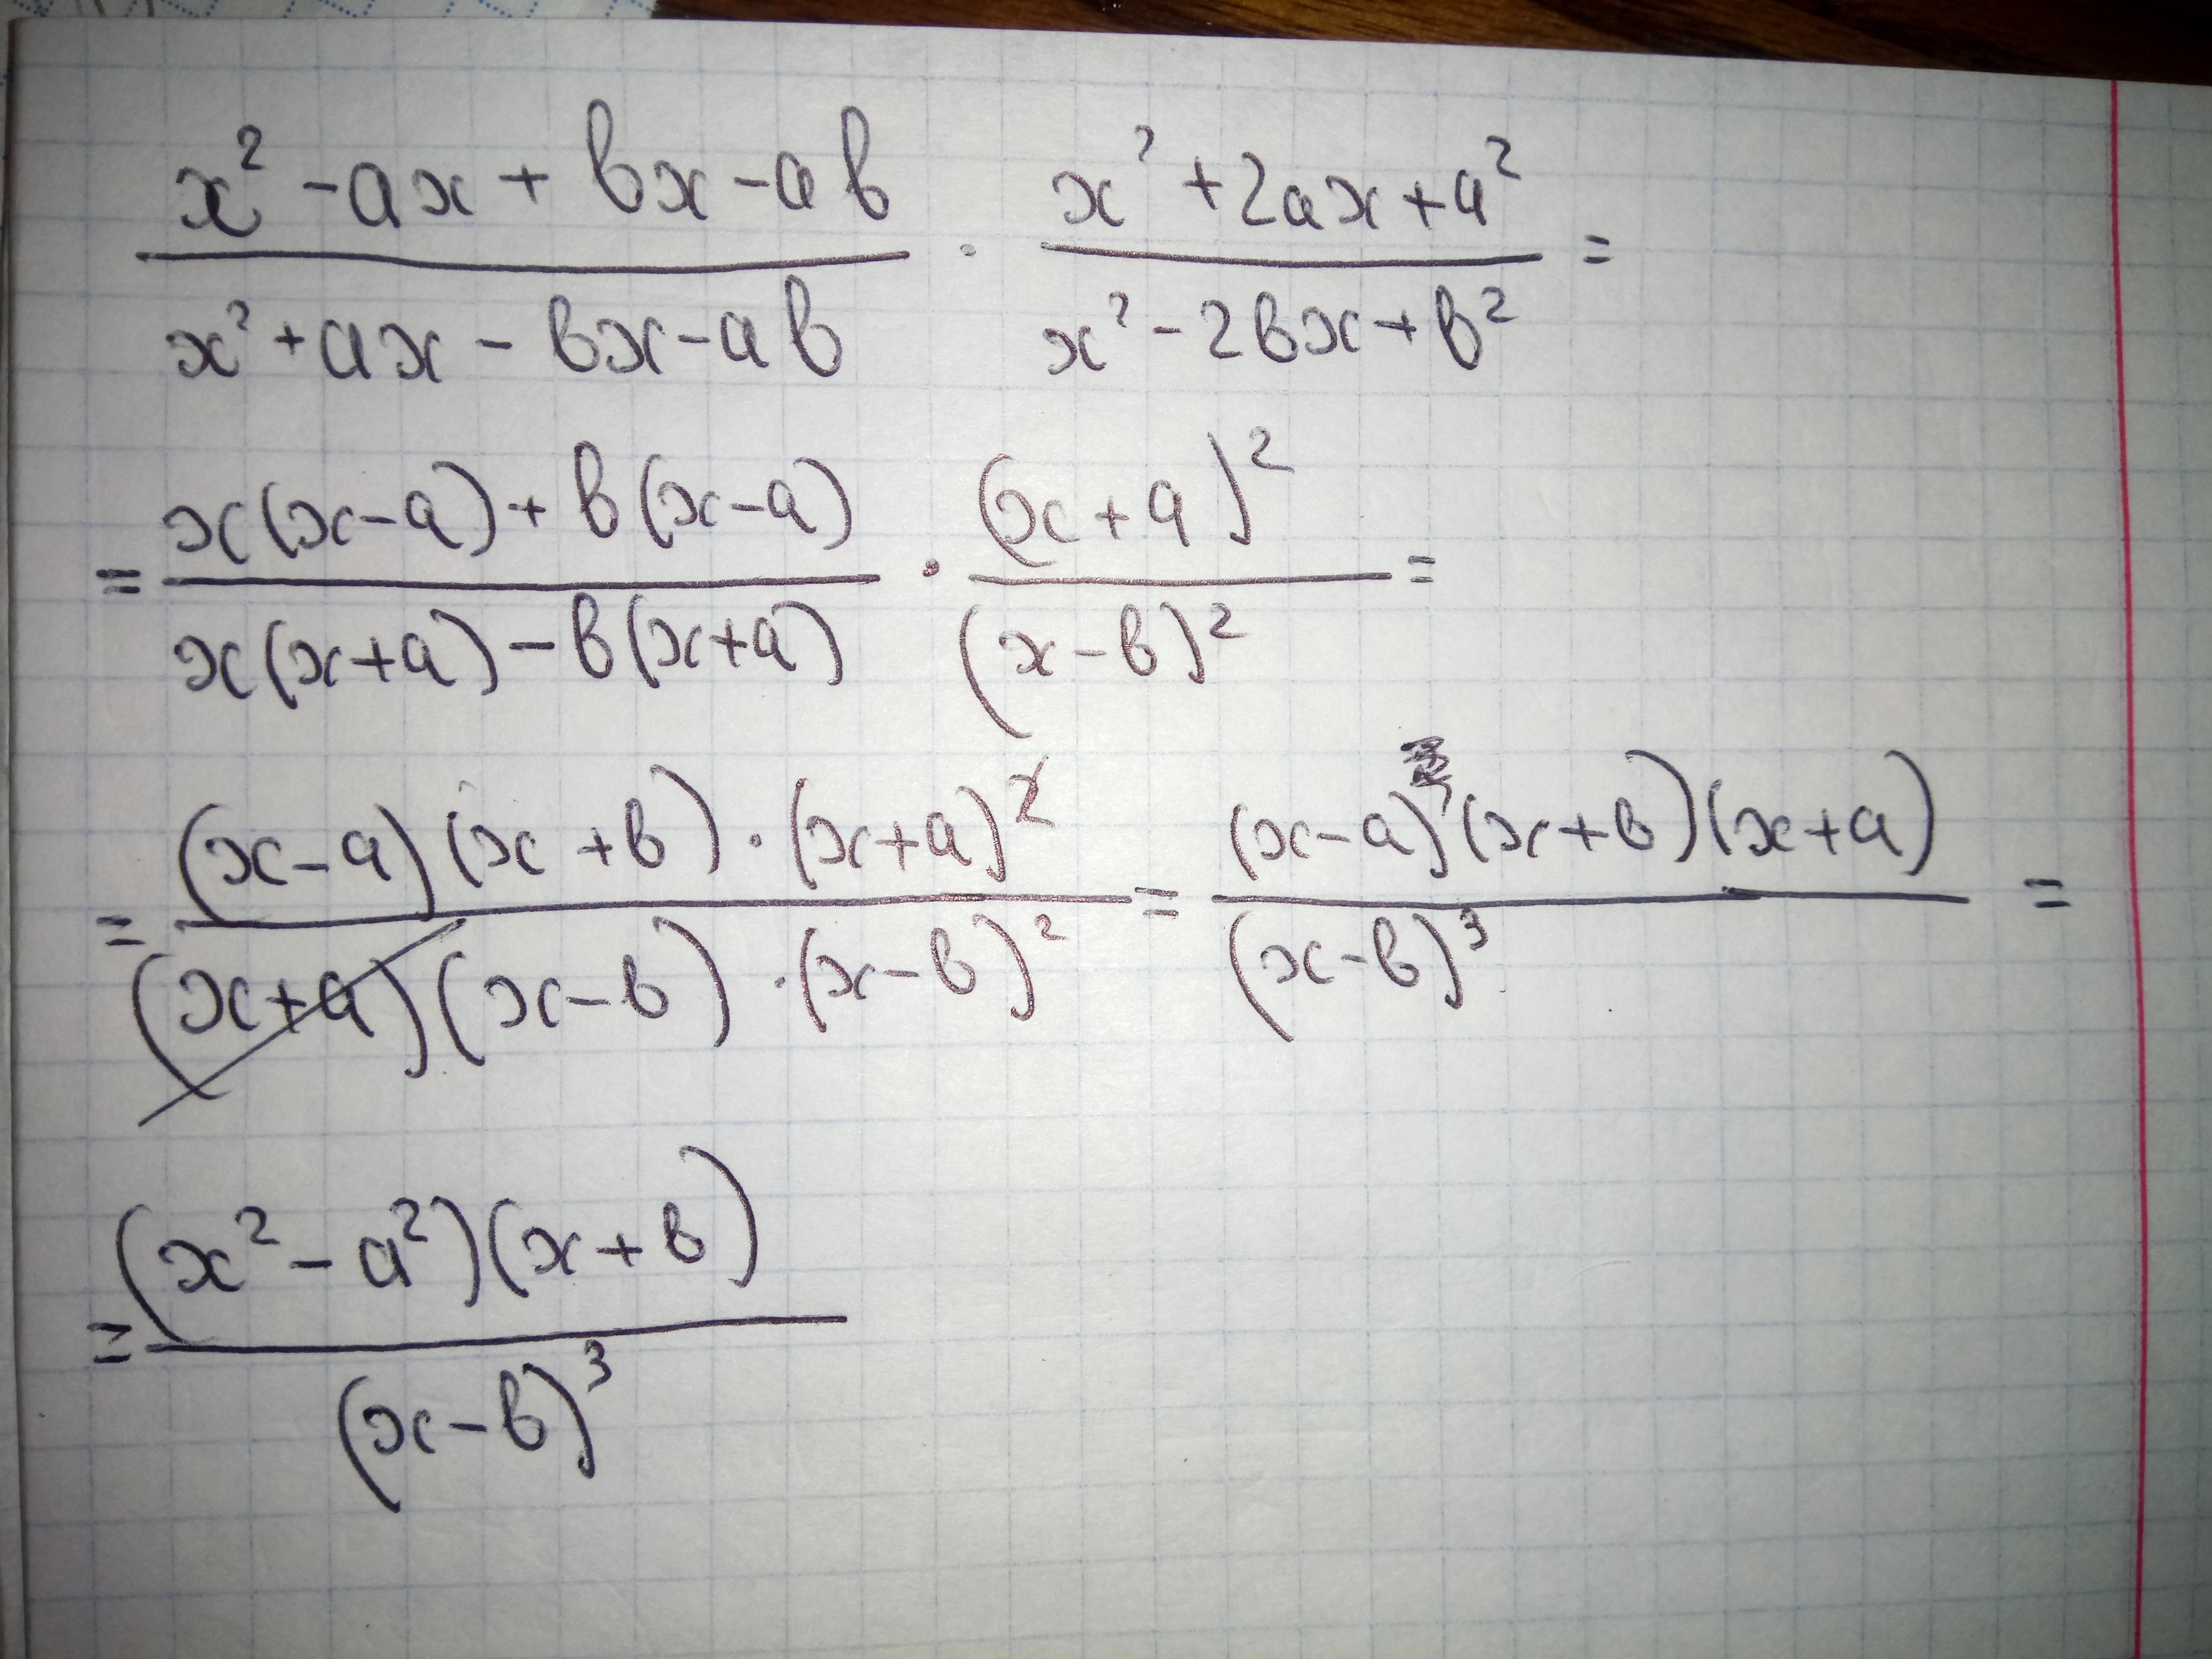 (x² - ax + bx - ab)/(x² + ax - bx - ab) · (x² + 2ax + a²)/(x² - 2bx + b²) =
= (x(x-a) + b(x-a))/(x(x+a) - b(x+a)) · (x+a)²/(x-b)² =
= ((x-a)(x+b)·(x+a)²)/((x+a)(x-b)·(x-b)²) = ((x-a)(x+b)(x+a))/(x-b)³ =
= ((x² - a²)(x+b))/(x-b)³